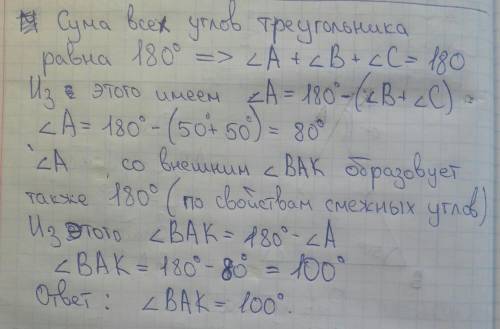 Сума всех углов треугольника
равна 180° => ∠A + ∠B + ∠C = 180
Из этого имеем ∠A = 180° - (∠B + ∠C) =
∠A = 180° - (50° + 50°) = 80°
∠A со внешним ∠BAK образовует
также 180° (по свойствам смежных углов)
Из этого ∠BAK = 180° - ∠A
∠BAK = 180° - 80° = 100°
Ответ: ∠BAK = 100°.